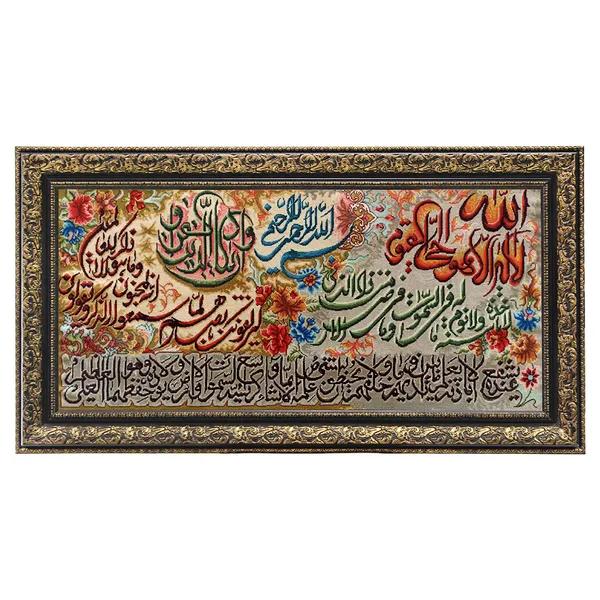 بسم الله الرحمن الرحیم
الله لا اله الا هو الحی القیوم
لا تأخذه سنة ولا نوم له ما فی السموات وما فی الارض من ذا الذی
یشفع عنده الا باذنه یعلم ما بین ایدیهم وما خلفهم ولا یحیطون بشیء من علمه الا بما شاء وسع کرسیه السموات والارض ولا یؤده حفظهما وهو العلی العظیم
وان یکاد الذین کفروا
لیزلقونک بابصارهم لما سمعوا الذکر ویقولون
انه لمجنون
وما هو الا ذکر للعالمین